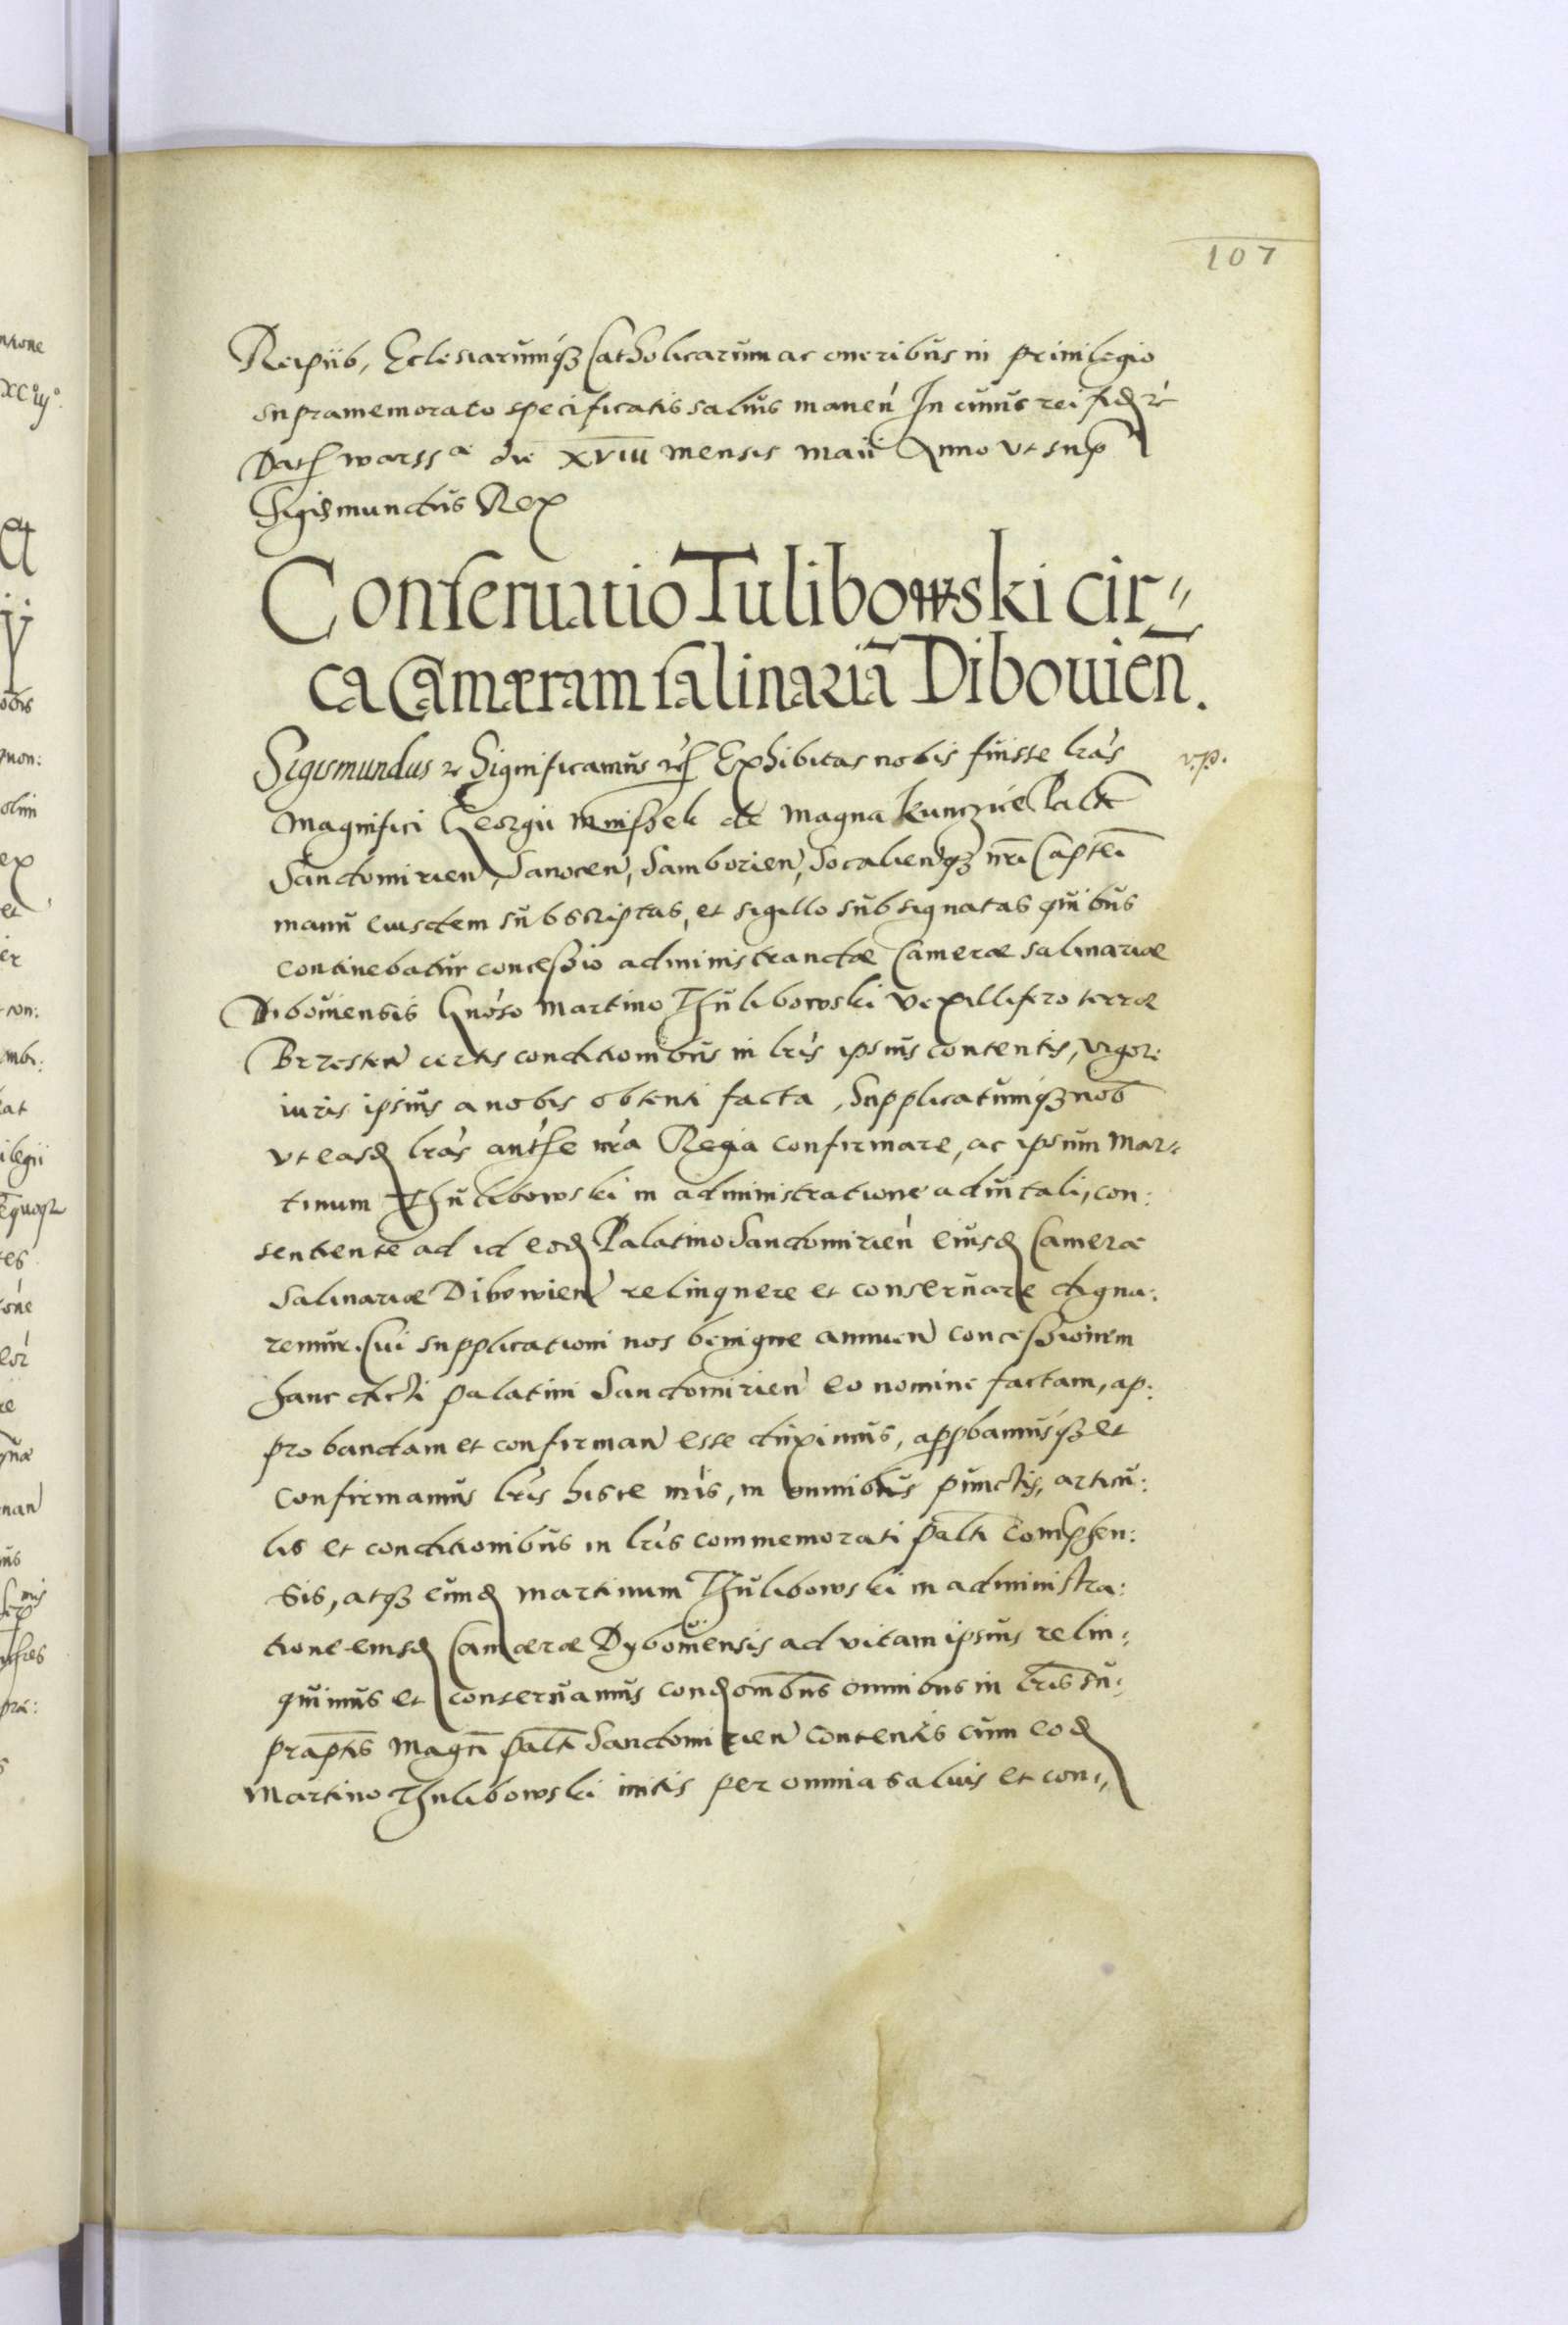 107
Reipub, Eclesiarumqz Catholicarum ac oneribus in priuilegio
supramemorato specificatis saluis manen In cuius rei fid etc
Dat warss a die XVIII mensis maii Anno vt sup
Sigismundus Rex
Conseruatio Tulibowski cir
ca Camæram salinariā Dibouien̄.
Sigismundus etc Significamus etc Exhibitas nobis fuisse lras v.p.
Magnifici Georgii Mniszek de Magna Kunczice Palat
Sandomirien, Sanocen, Samborien, Socalienqz nri Captei
manu eiusdem subscriptas, et sigillo subsignatas quibus
continebatur concessio administrandæ Cameræ salinariæ
Dibouiensis Gnoso Martino Thulibowski Vexillifero terræ
Brzesten certis conditionibus in lris ipsius contentis, vigore
iuris ipsius a nobis obtenti facta, Supplicatumqz nob
vt easd lras authe nra Regia confirmare, ac ipsum Mar
tinum Thulibowski in administratione aduitali, con:
sentiente ad id eod Palatino Sandomirien eiusd Cameræ
Salinariæ Dibowien relinquere et conseruare digna:
remur. Cui supplicationi nos benigne annuen concessionem
hanc dicti Palatini Sandomirien eo nomine factam, ap:
probandam et confirman esse duximus, appbamusqz et
confirmamus lris hisce nris, in omnibus punctis, articu:
lis et conditionibus in lris commemorati palti comphen:
sis, atqz eund Martinum Thulibowski in administra:
tione eiusd Camæræ Dybouiensis ad vitam ipsius relin:
quimus et conseruamus condombus omnibus in lris su:
praptis Magci palti Sandomirien contentis cum eod
Martino Thulibowski initis per omnia saluis et con: